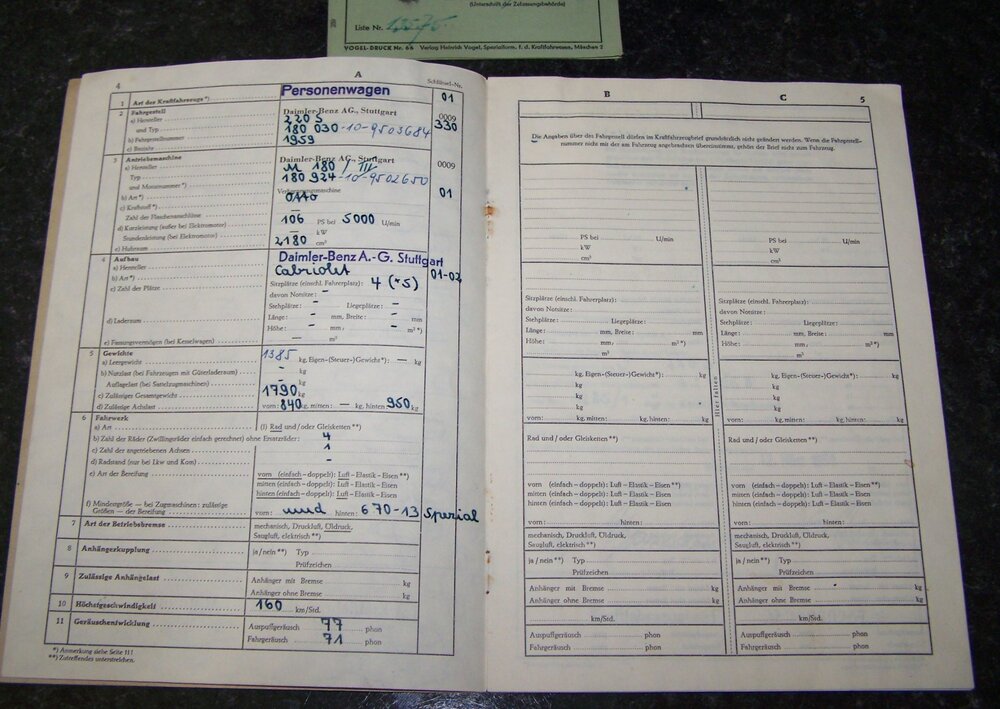 (Unterschrift der Zulassungsbehörde)
Liste Nr.
VOGEL-DRUCK Nr. 66 Verlag Heinrich Vogel, Spezialform. f. d. Kraftfahrwesen, München 2
4
A
Schlüssel-Nr.
1 Art des Kraftfahrzeugs*) Personenwagen 01
2 Fahrgestell
a) Hersteller Daimler-Benz AG., Stuttgart 0009
und Typ 220 S 330
b) Fahrgestellnummer 180 030-10-9503684
c) Baujahr 1959
3 Antriebsmaschine
a) Hersteller Daimler-Benz AG., Stuttgart 0009
Typ M 180 / III
und Motornummer*) 180 924-10-9502650
b) Art*) 01
c) Kraftstoff*) Otto
Zahl der Flaschenanschlüsse —
d) Kurzleistung (außer bei Elektromotor) 106 PS bei 5000 U/min
Stundenleistung (bei Elektromotor) — kW
e) Hubraum 2180 cm³
4 Aufbau
a) Hersteller Daimler-Benz A.-G. Stuttgart
b) Art*) Cabriolet 01-02
c) Zahl der Plätze Sitzplätze (einschl. Fahrerplatz): 4 (*5)
davon Notsitze: -
Stehplätze: - Liegeplätze: -
d) Laderaum Länge: - mm, Breite: - mm
Höhe: - mm, - m² *)
e) Fassungsvermögen (bei Kesselwagen) — m³
5 Gewichte
a) Leergewicht 1385 kg, Eigen-(Steuer-)Gewicht*): — kg
b) Nutzlast (bei Fahrzeugen mit Güterladeraum) - kg
Auflagelast (bei Sattelzugmaschinen) - kg
c) Zulässiges Gesamtgewicht 1790 kg
d) Zulässige Achslast vorn: 840 kg, mitten: — kg, hinten: 950 kg
6 Fahrwerk
a) Art (1) Rad und/oder Gleisketten **)
b) Zahl der Räder (Zwillingsräder einfach gerechnet) ohne Ersatzräder: 4
c) Zahl der angetriebenen Achsen 1
d) Radstand (nur bei Lkw und Kom) -
e) Art der Bereifung vorn (einfach – doppelt): Luft – Elastik – Eisen **)
mitten (einfach – doppelt): Luft – Elastik – Eisen
hinten (einfach – doppelt): Luft – Elastik – Eisen
f) Mindestgröße — bei Zugmaschinen: zulässige
Größen — der Bereifung vorn: und hinten: 670-13 Spezial
7 Art der Betriebsbremse mechanisch, Druckluft, Öldruck,
Saugluft, elektrisch **)
8 Anhängerkupplung ja / nein **) Typ
Prüfzeichen
9 Zulässige Anhängelast Anhänger mit Bremse kg
Anhänger ohne Bremse kg
10 Höchstgeschwindigkeit 160 km/Std.
11 Geräuschentwicklung Auspuffgeräusch 77 phon
Fahrgeräusch 71 phon
*) Anmerkung siehe Seite 11!
**) Zutreffendes unterstreichen.
B C 5
Die Angaben über das Fahrgestell dürfen im Kraftfahrzeugbrief grundsätzlich nicht geändert werden. Wenn die Fahrgestell-
nummer nicht mit der am Fahrzeug angebrachten übereinstimmt, gehört der Brief nicht zum Fahrzeug.
PS bei U/min
kW
cm³
Sitzplätze (einschl. Fahrerplatz):
davon Notsitze:
Stehplätze: Liegeplätze:
Länge: mm, Breite: mm
Höhe: mm, m² *)
m³
kg, Eigen-(Steuer-)Gewicht*): kg
kg
kg
kg
vorn: kg, mitten: kg, hinten: kg
Rad und / oder Gleisketten **)
vorn (einfach – doppelt): Luft – Elastik – Eisen **)
mitten (einfach – doppelt): Luft – Elastik – Eisen
hinten (einfach – doppelt): Luft – Elastik – Eisen
vorn: hinten:
mechanisch, Druckluft, Öldruck,
Saugluft, elektrisch **)
ja / nein **) Typ
Prüfzeichen
Anhänger mit Bremse kg
Anhänger ohne Bremse kg
km/Std.
Auspuffgeräusch phon
Fahrgeräusch phon
Hier falten
PS bei U/min
kW
cm³
Sitzplätze (einschl. Fahrerplatz):
davon Notsitze:
Stehplätze: Liegeplätze:
Länge: mm, Breite: mm
Höhe: mm, m² *)
m³
kg, Eigen-(Steuer-)Gewicht*): kg
kg
kg
kg
vorn: kg, mitten: kg, hinten: kg
Rad und / oder Gleisketten **)
vorn (einfach – doppelt): Luft – Elastik – Eisen **)
mitten (einfach – doppelt): Luft – Elastik – Eisen
hinten (einfach – doppelt): Luft – Elastik – Eisen
vorn: hinten:
mechanisch, Druckluft, Öldruck,
Saugluft, elektrisch **)
ja / nein **) Typ
Prüfzeichen
Anhänger mit Bremse kg
Anhänger ohne Bremse kg
km/Std.
Auspuffgeräusch phon
Fahrgeräusch phon